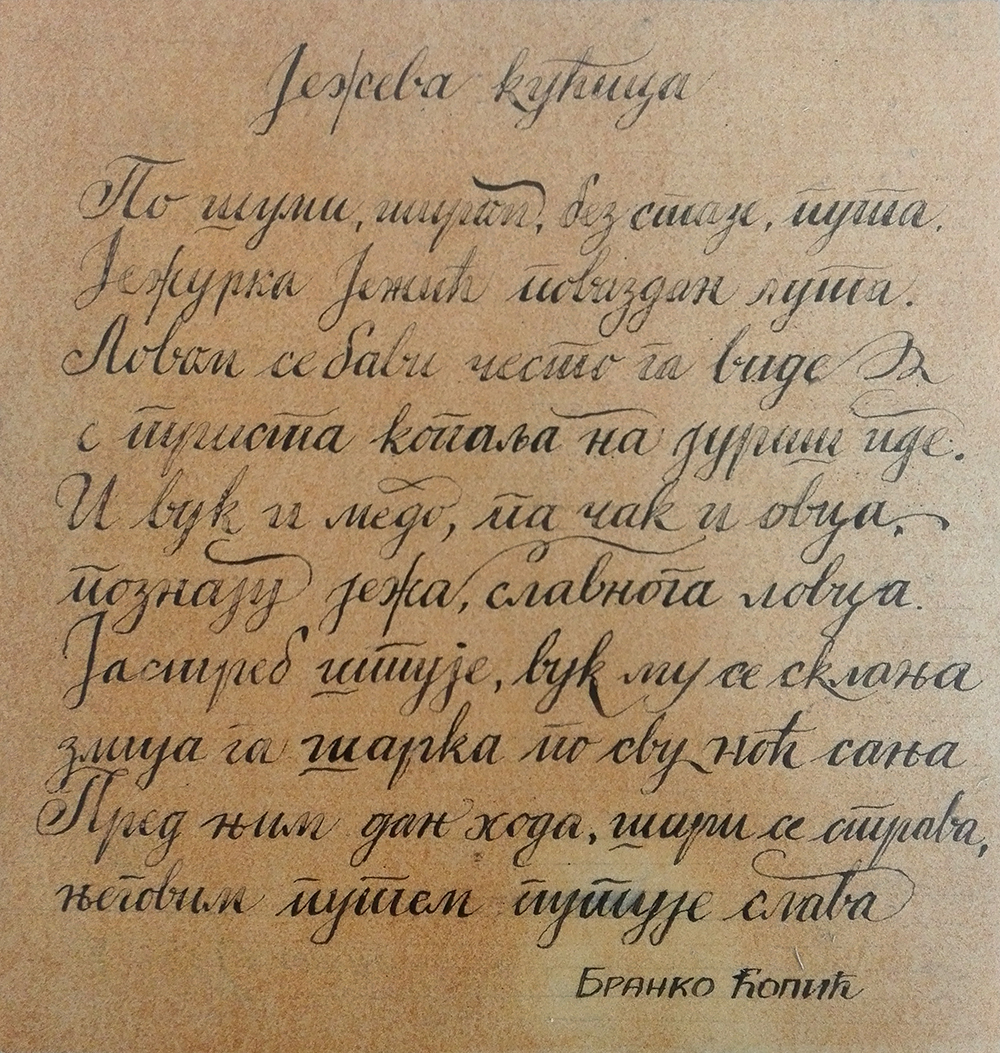 Јежева кућица
По шуми, широм, без стазе, пута.
Јежурка Јежић поваздан лута.
Ловом се бави често га виде
с триста копаља на јуриш иде.
И вук и медо, па чак и овца,
познају јежа, славнога ловца.
Јастреб штује, вук му се склања
змија га шарка по сву ноћ сања
Пред њим дан хода, шири се страва,
његовим путем путује слава
Бранко Ћопић